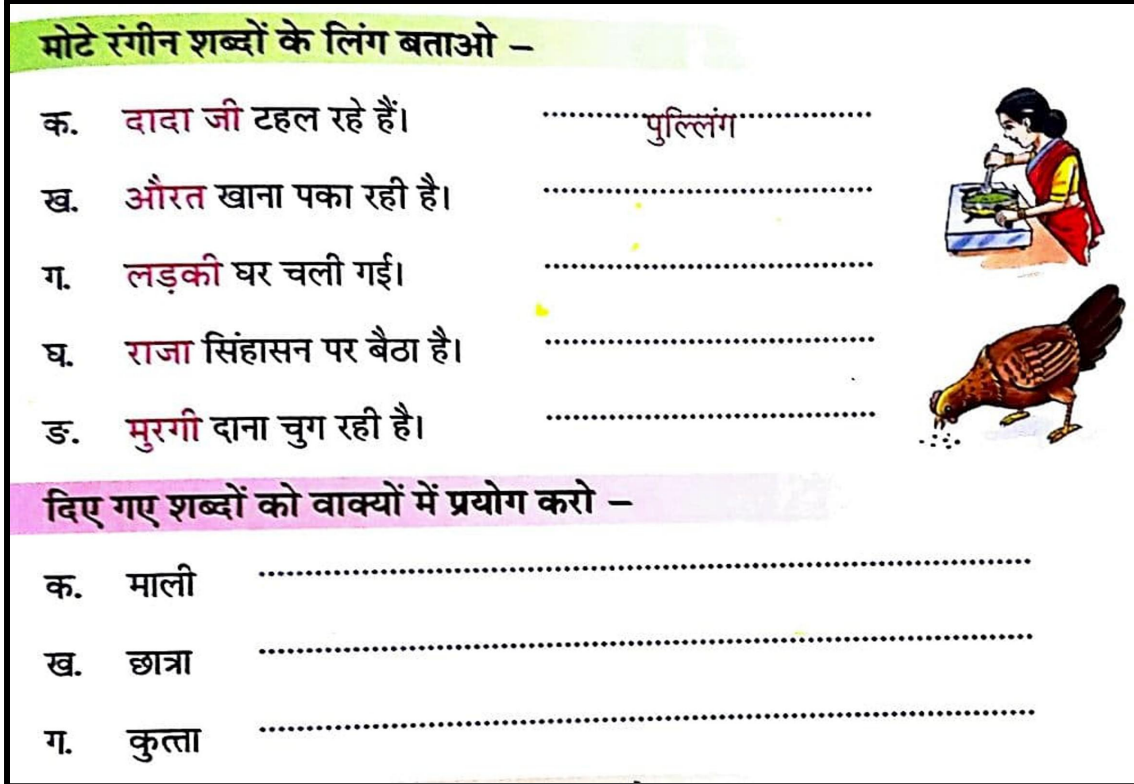 मोटे रंगीन शब्दों के लिंग बताओ –
क. दादा जी टहल रहे हैं। ........ पुल्लिंग ........
ख. औरत खाना पका रही है। ................
ग. लड़की घर चली गई। ................
घ. राजा सिंहासन पर बैठा है। ................
ङ. मुरगी दाना चुग रही है। ................
दिए गए शब्दों को वाक्यों में प्रयोग करो –
क. माली ................
ख. छात्रा ................
ग. कुत्ता ................